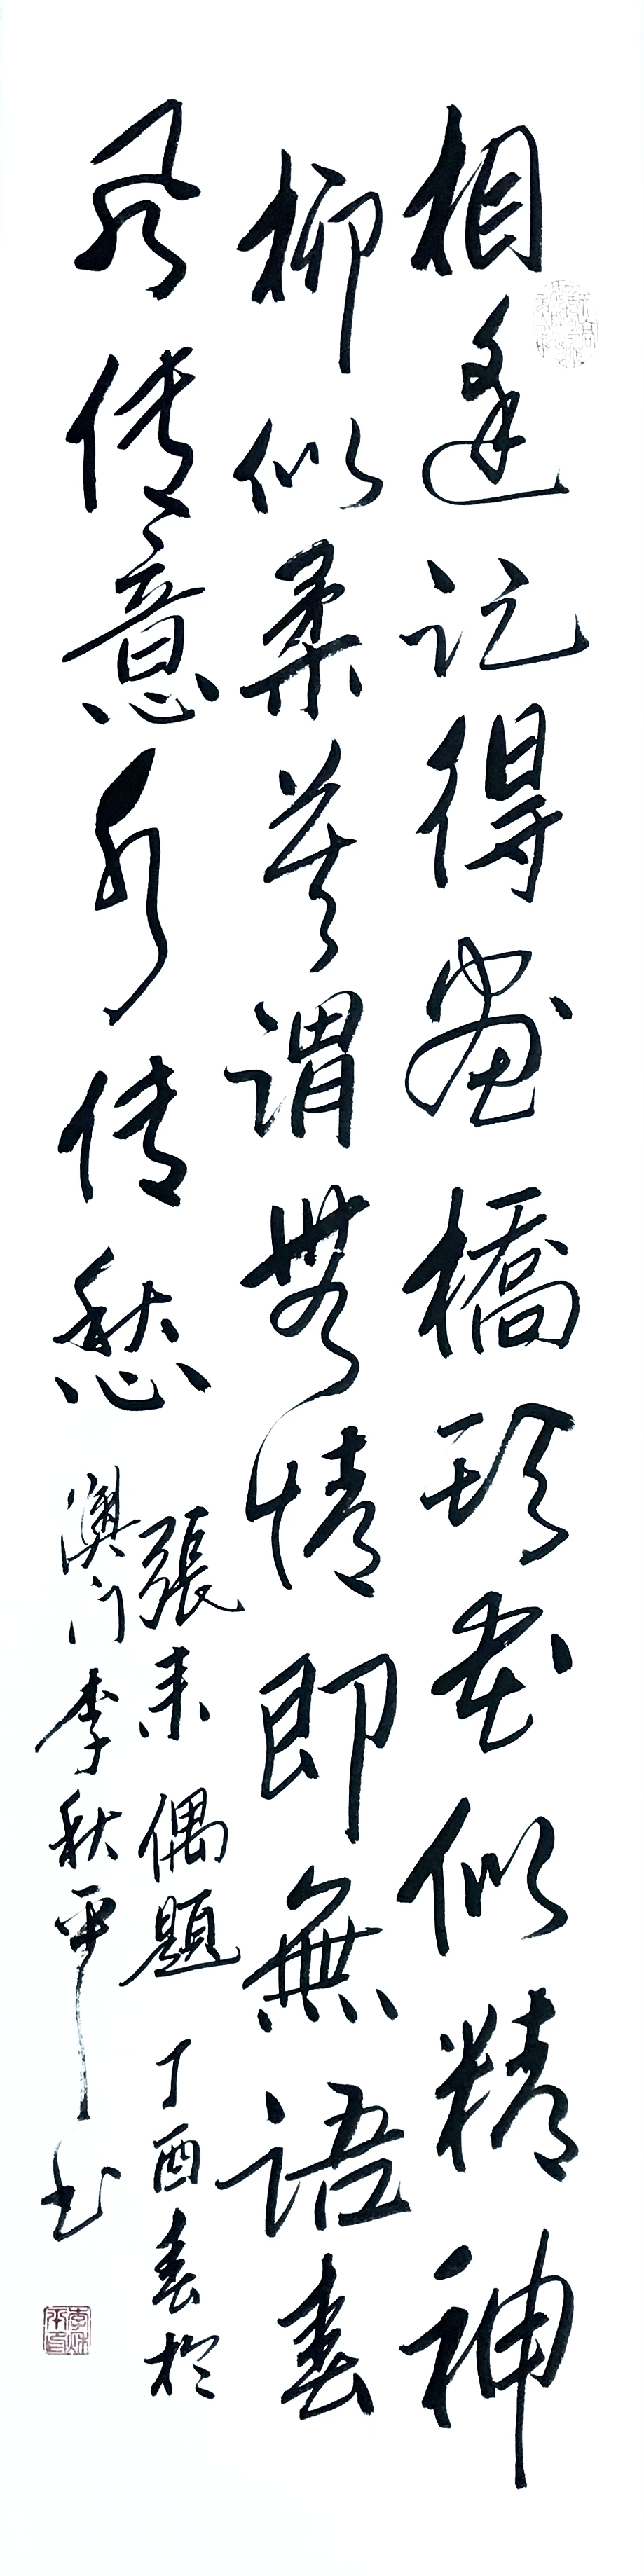 相逢記得畫橋頭花似精神
柳似柔莫謂無情即無語春
風傳意水傳愁
張耒偶題 丁酉春於
澳門李秋平書